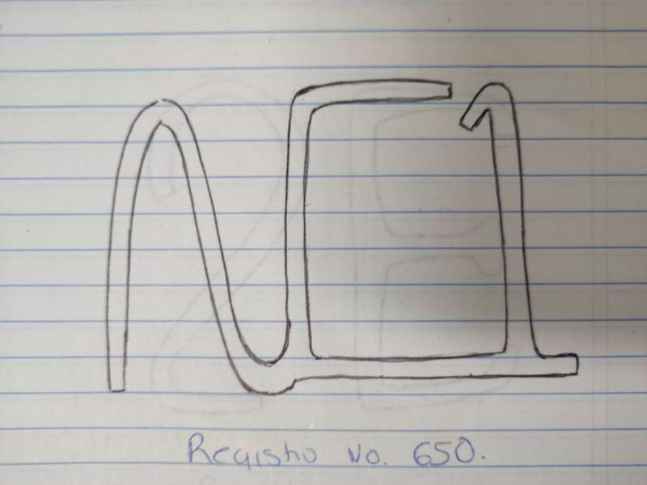 Registro No. 650.